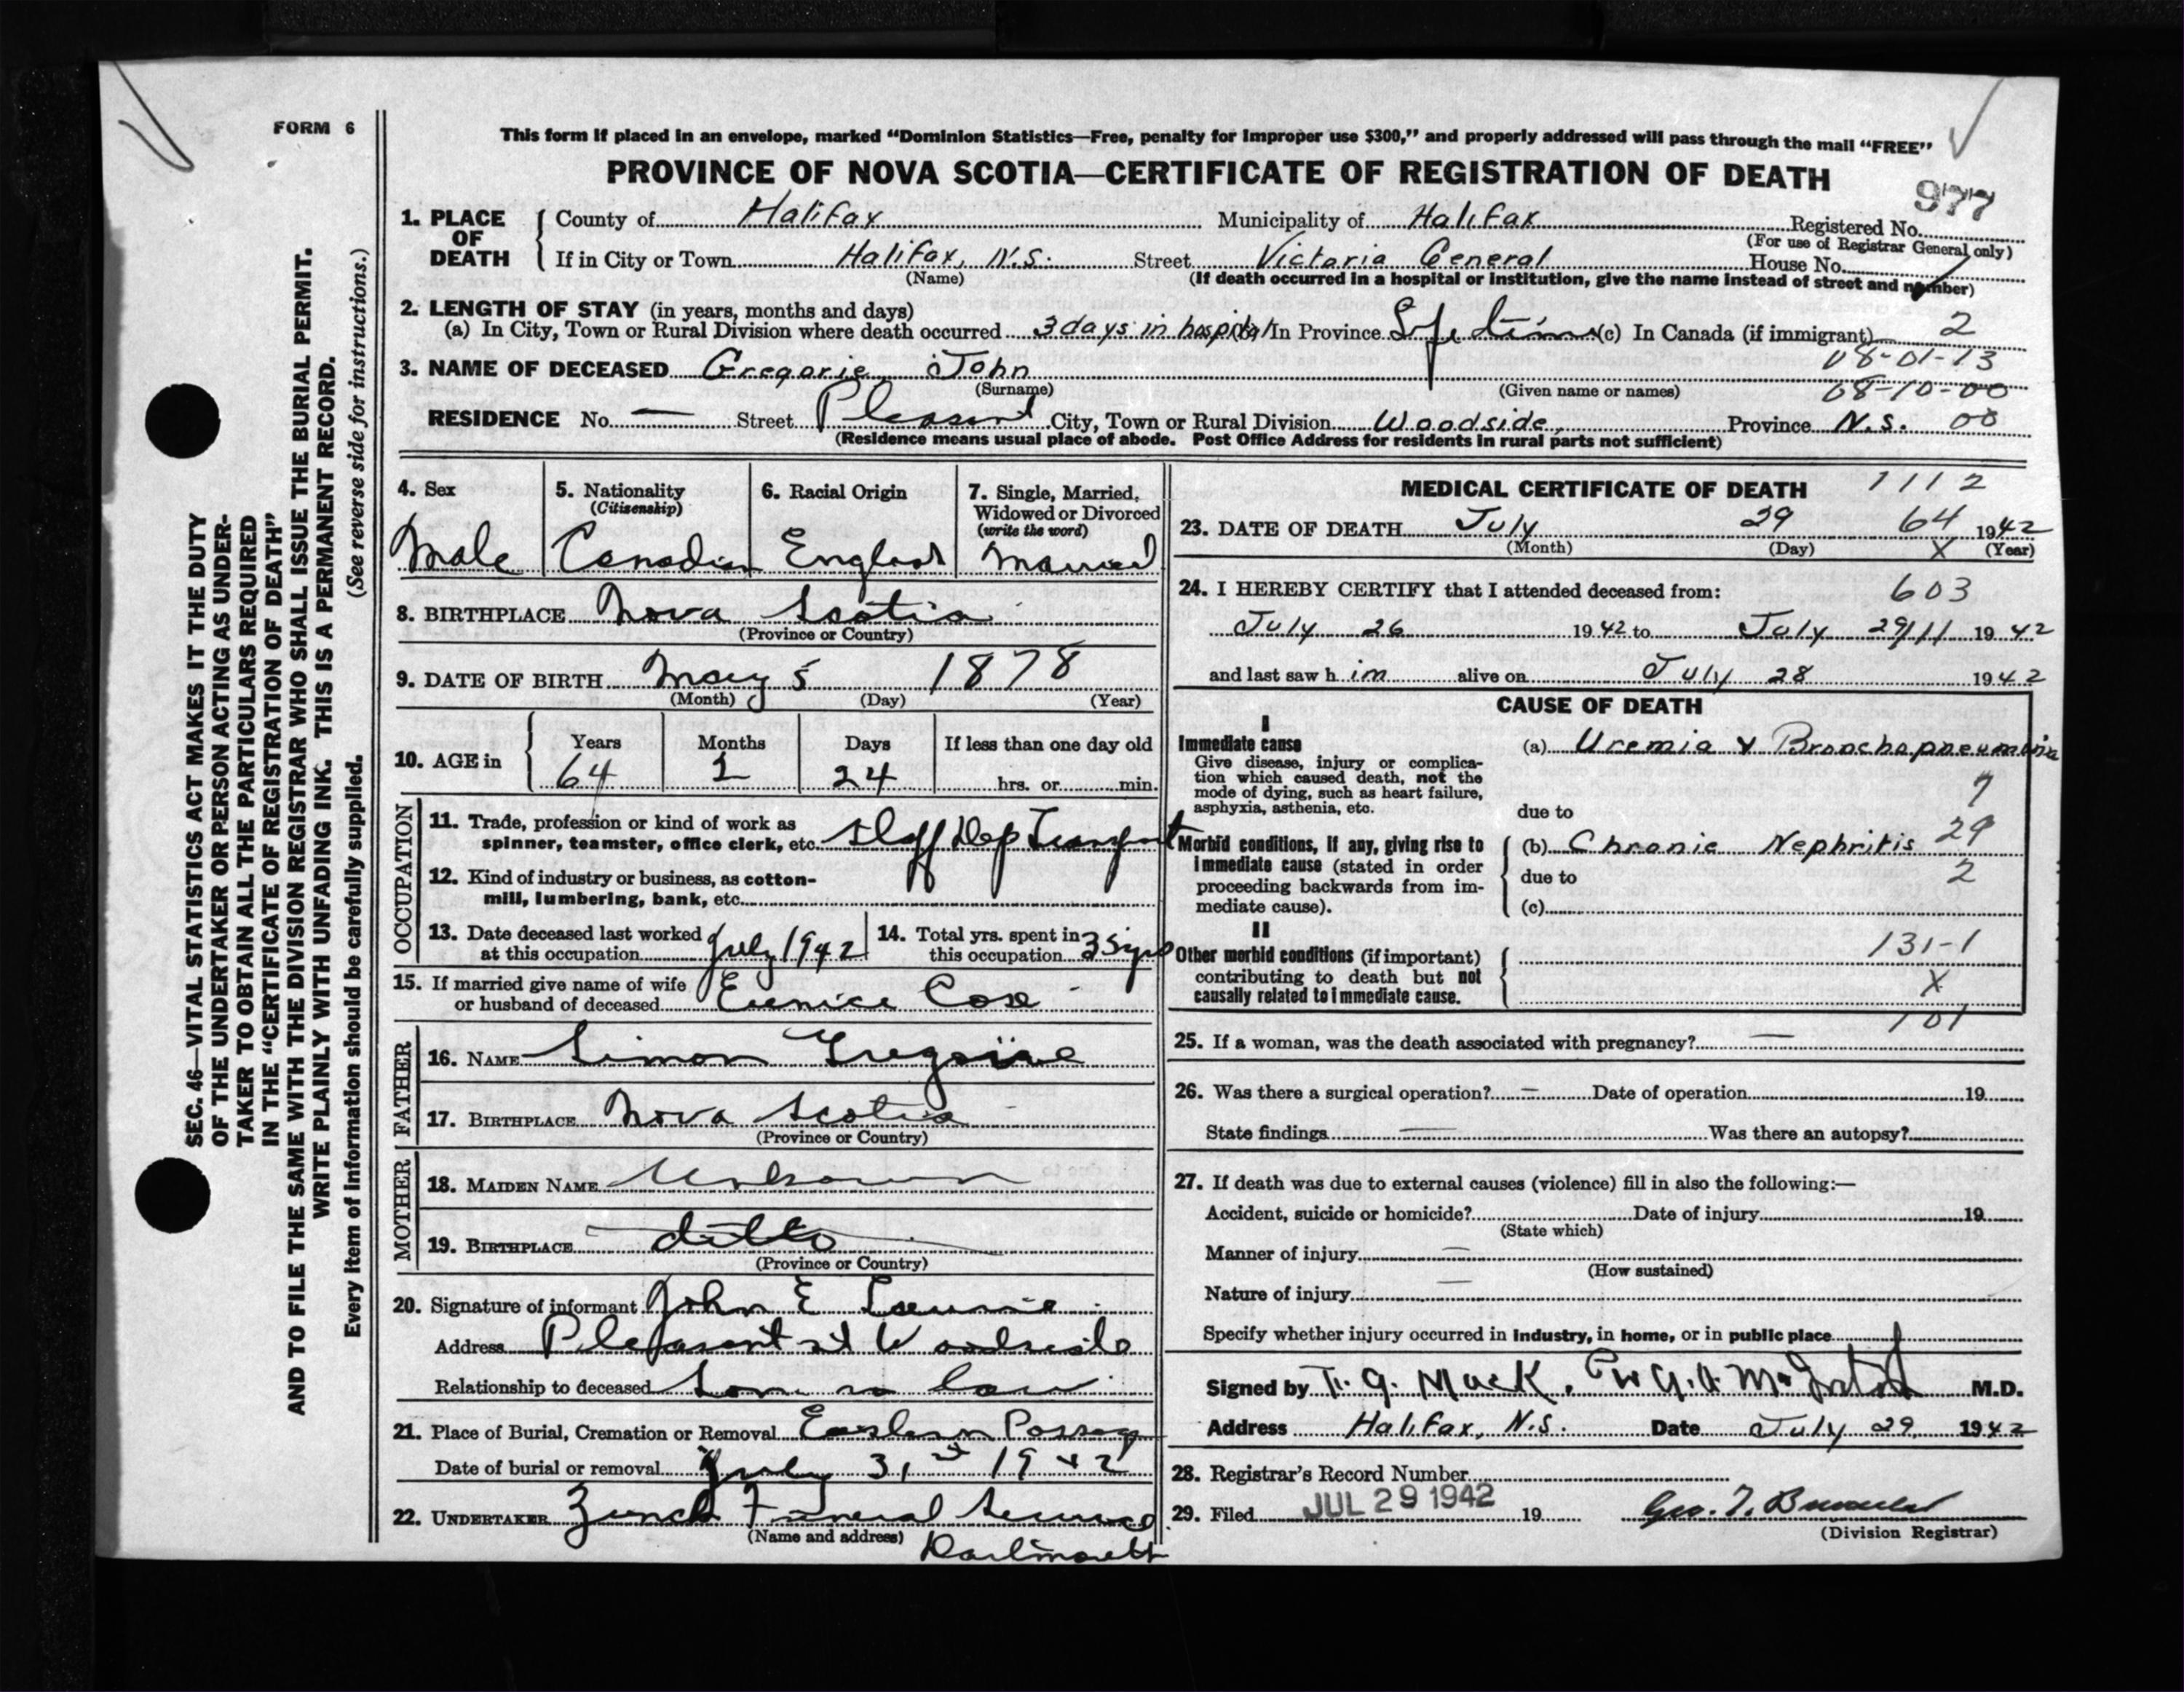 FORM 6
This form if placed in an envelope, marked “Dominion Statistics—Free, penalty for improper use $300,” and properly addressed will pass through the mail “FREE”
PROVINCE OF NOVA SCOTIA—CERTIFICATE OF REGISTRATION OF DEATH
977
1. PLACE OF DEATH
County of Halifax Municipality of Halifax Registered No.
(For use of Registrar General only)
If in City or Town Halifax, N.S. Street Victoria General House No.
(Name) (If death occurred in a hospital or institution, give the name instead of street and number)
2. LENGTH OF STAY (in years, months and days)
(a) In City, Town or Rural Division where death occurred 3 days in hospital (b) In Province Life time (c) In Canada (if immigrant) 2
08-01-13
3. NAME OF DECEASED Gregorie John
(Surname) (Given name or names) 08-10-00
RESIDENCE No. — Street Pleasant City, Town or Rural Division Woodside, Province N.S. 00
(Residence means usual place of abode. Post Office Address for residents in rural parts not sufficient)
4. Sex Male
5. Nationality (Citizenship) Canadian
6. Racial Origin English
7. Single, Married, Widowed or Divorced (write the word) Married
8. BIRTHPLACE Nova Scotia
(Province or Country)
9. DATE OF BIRTH May 5 1878
(Month) (Day) (Year)
10. AGE in Years 64 Months 2 Days 24 If less than one day old hrs. or min.
OCCUPATION
11. Trade, profession or kind of work as
spinner, teamster, office clerk, etc.
12. Kind of industry or business, as cotton-
mill, lumbering, bank, etc.
13. Date deceased last worked at this occupation July 1942
14. Total yrs. spent in this occupation 35 yrs
15. If married give name of wife
or husband of deceased Eunice
FATHER
16. NAME Simon Gregoire
17. BIRTHPLACE Nova Scotia
(Province or Country)
MOTHER
18. MAIDEN NAME Unknown
19. BIRTHPLACE ditto
(Province or Country)
20. Signature of informant John E
Address Pleasant st Woodside
Relationship to deceased Son in law
21. Place of Burial, Cremation or Removal Eastern Passage
Date of burial or removal July 31st 1942
22. UNDERTAKER Zinck Funeral Service
(Name and address) Dartmouth
MEDICAL CERTIFICATE OF DEATH 1112
23. DATE OF DEATH July 29 64 1942
(Month) (Day) X (Year)
24. I HEREBY CERTIFY that I attended deceased from: 603
July 26 1942 to July 29/11 1942
and last saw h im alive on July 28 1942
CAUSE OF DEATH
I
Immediate cause
Give disease, injury or complica-
tion which caused death, not the
mode of dying, such as heart failure,
asphyxia, asthenia, etc.
(a) Uremia & Bronchopneumonia
7
due to
Morbid conditions, if any, giving rise to
immediate cause (stated in order
proceeding backwards from im-
mediate cause).
(b) Chronic Nephritis 29
due to 2
(c)
II
Other morbid conditions (if important)
contributing to death but not
causally related to immediate cause.
131-1
X
101
25. If a woman, was the death associated with pregnancy? —
26. Was there a surgical operation? — Date of operation 19
State findings — Was there an autopsy?
27. If death was due to external causes (violence) fill in also the following:—
Accident, suicide or homicide? Date of injury 19
(State which)
Manner of injury —
(How sustained)
Nature of injury —
Specify whether injury occurred in industry, in home, or in public place
Signed by T. G. Mack, M.D.
Address Halifax, N.S. Date July 29, 1942
28. Registrar's Record Number
29. Filed JUL 29 1942 19
(Division Registrar)
SEC. 46—VITAL STATISTICS ACT MAKES IT THE DUTY
OF THE UNDERTAKER OR PERSON ACTING AS UNDER-
TAKER TO OBTAIN ALL THE PARTICULARS REQUIRED
IN THE “CERTIFICATE OF REGISTRATION OF DEATH”
AND TO FILE THE SAME WITH THE DIVISION REGISTRAR WHO SHALL ISSUE THE BURIAL PERMIT.
WRITE PLAINLY WITH UNFADING INK. THIS IS A PERMANENT RECORD.
Every item of information should be carefully supplied. (See reverse side for instructions.)